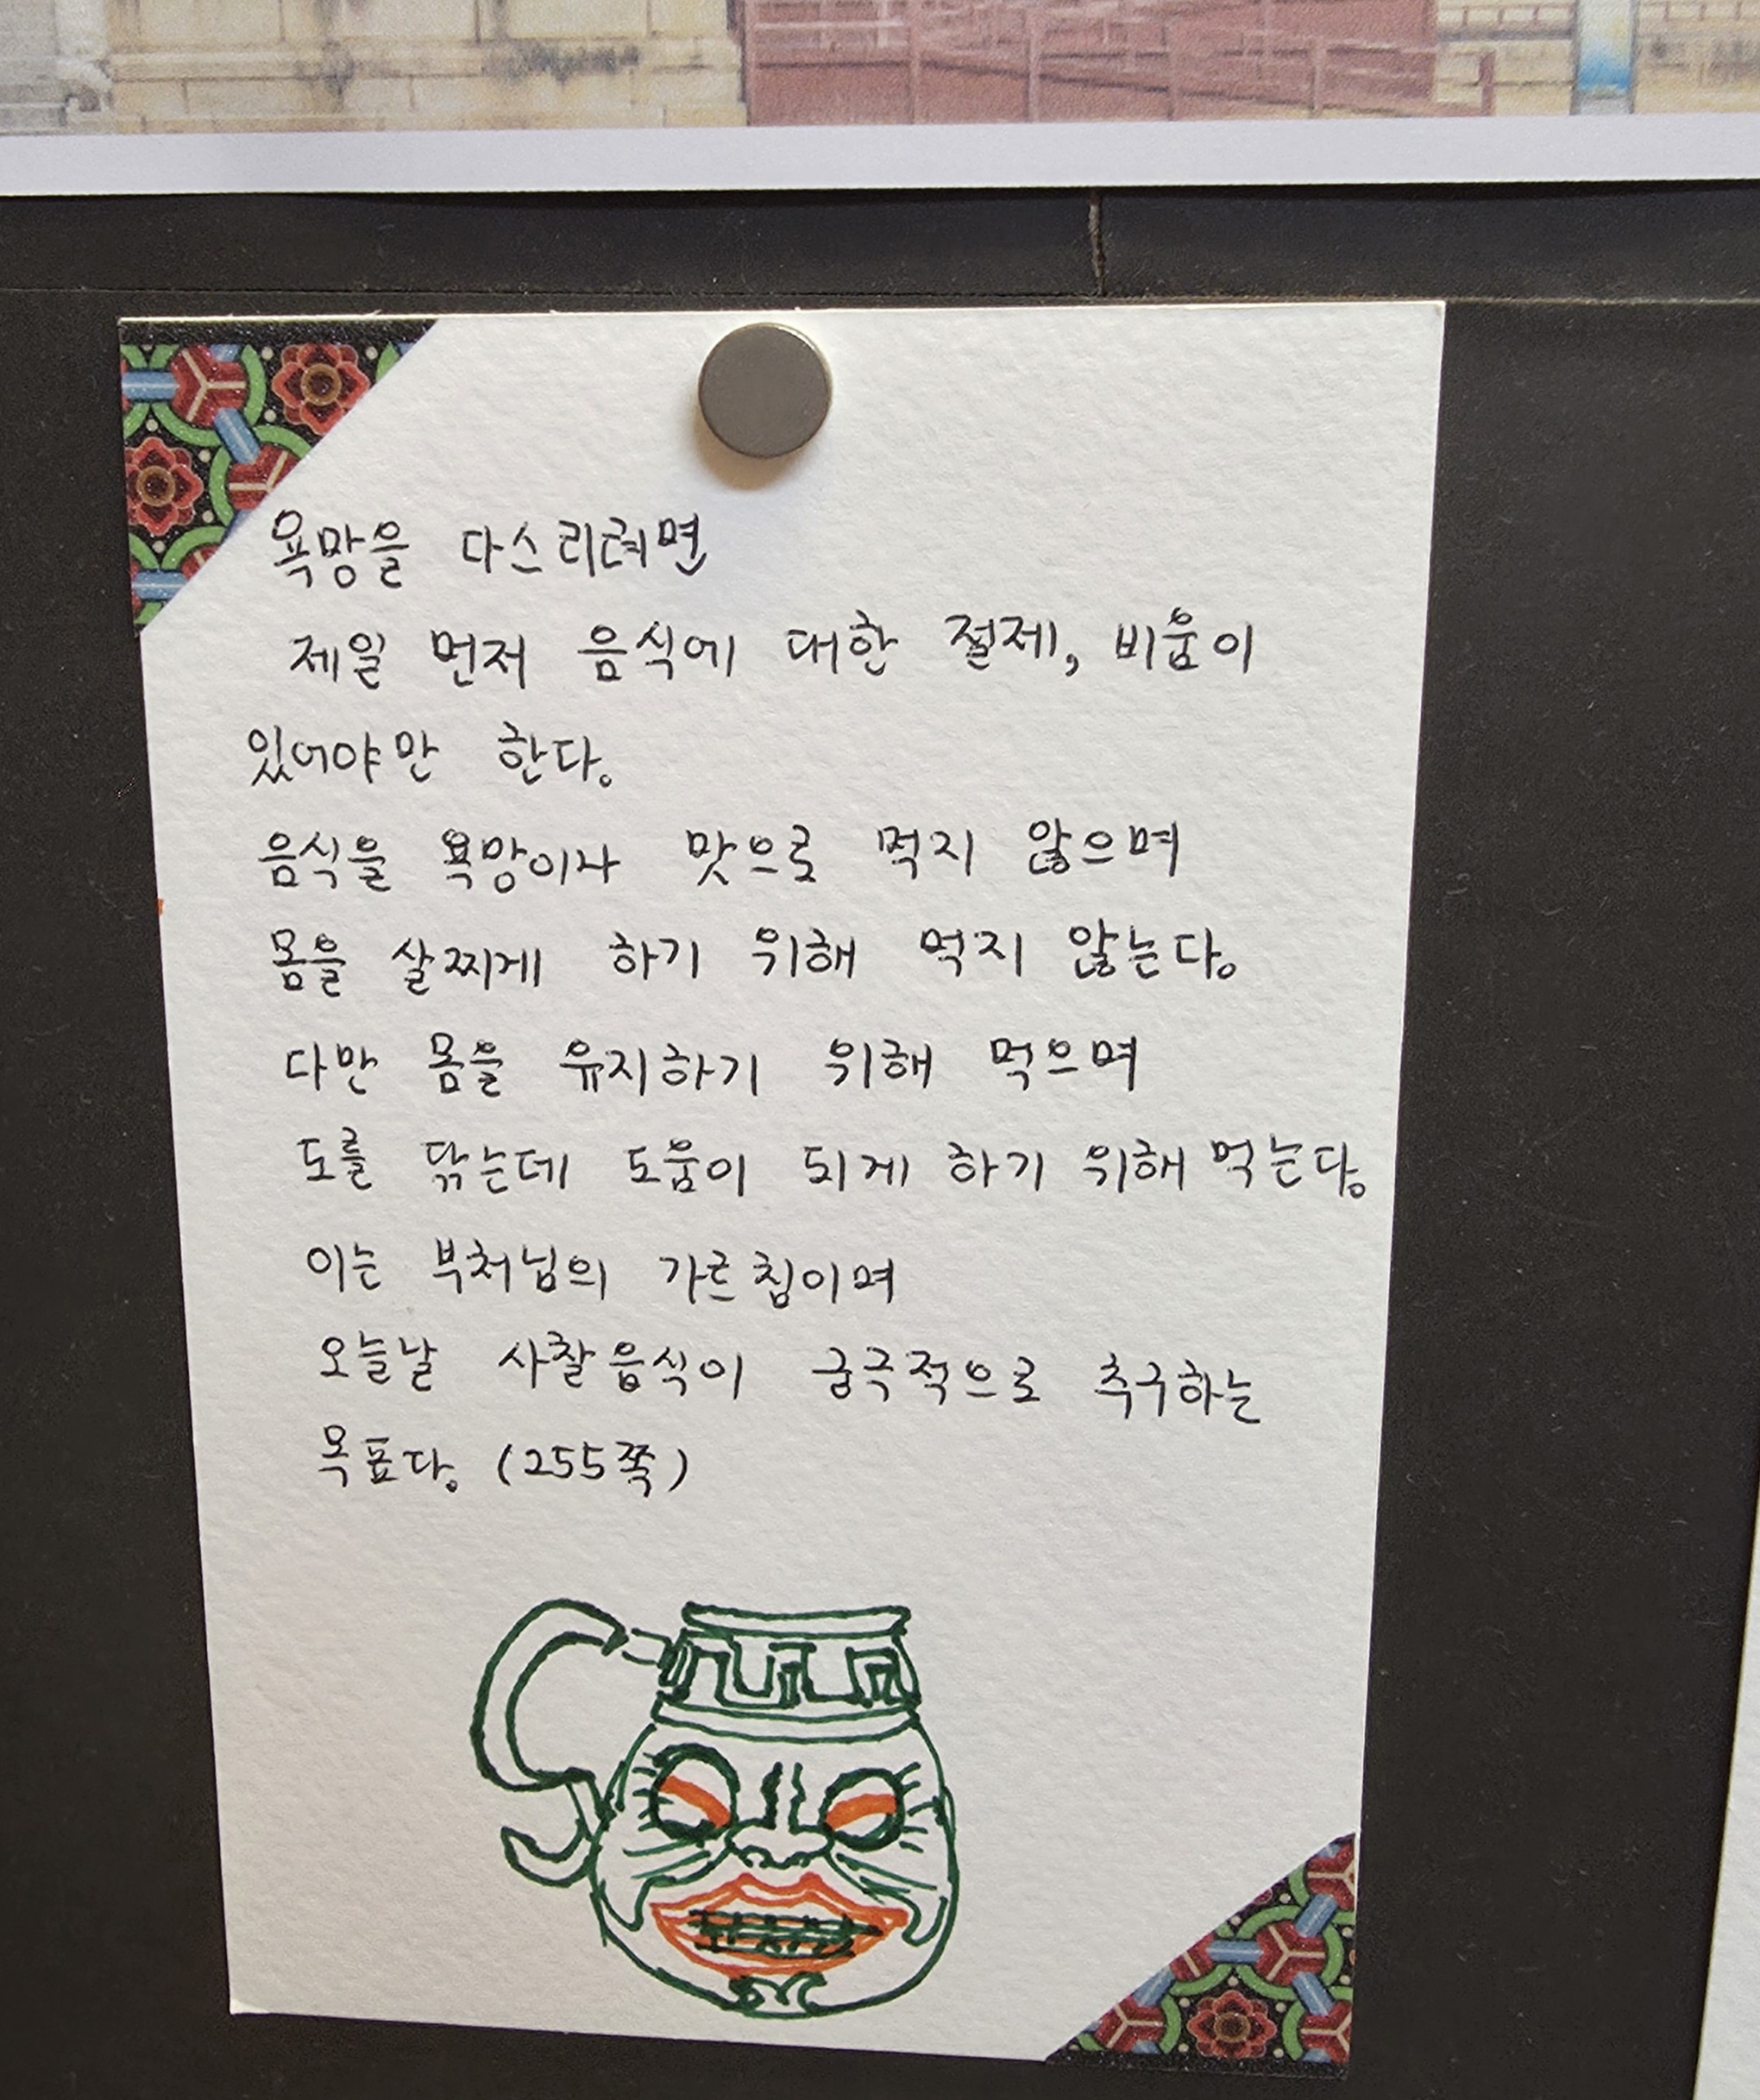 욕망을 다스리려면
제일 먼저 음식에 대한 절제, 비움이
있어야만 한다.
음식을 욕망이나 맛으로 먹지 않으며
몸을 살찌게 하기 위해 먹지 않는다.
다만 몸을 유지하기 위해 먹으며
도를 닦는데 도움이 되게 하기 위해 먹는다.
이는 부처님의 가르침이며
오늘날 사찰음식이 궁극적으로 추구하는
목표다. (255쪽)